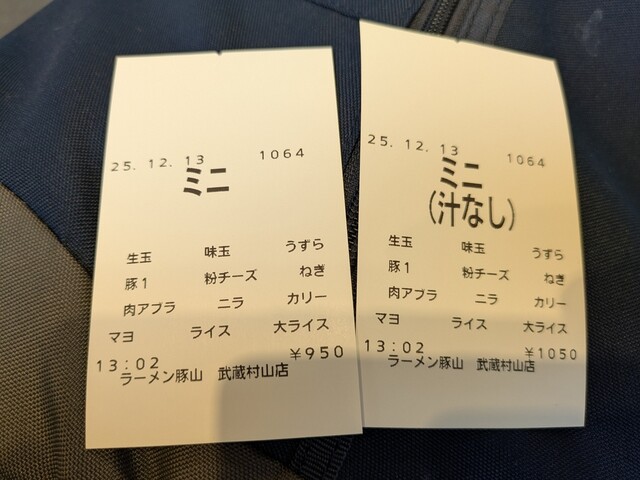 25.12.13 1064
ミニ
生玉 味玉 うずら
豚1 粉チーズ ねぎ
肉アブラ ニラ カリー
マヨ ライス 大ライス
13:02 ¥950
ラーメン豚山 武蔵村山店
25.12.13 1064
ミニ
(汁なし)
生玉 味玉 うずら
豚1 粉チーズ ねぎ
肉アブラ ニラ カリー
マヨ ライス 大ライス
13:02 ¥1050
ラーメン豚山 武蔵村山店